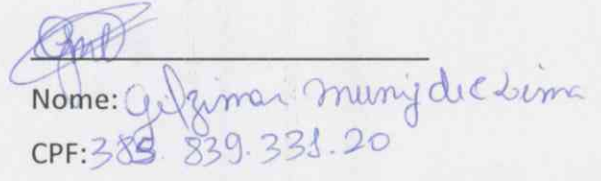 Nome: Gelzimar Muniz de Lima
CPF: 385.839.331.20